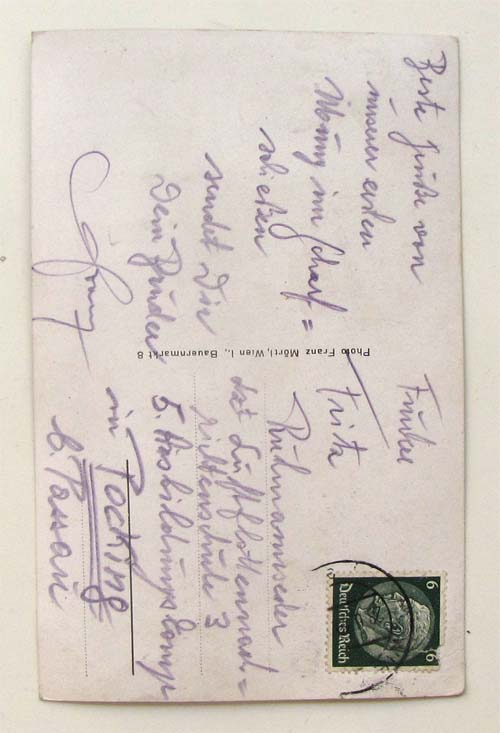 Beste Grüße von
unserer ersten
Übung im Scharf=
schießen
sendet Dir
Dein Bruder
Franz
Photo Franz Mörtl, Wien I., Bauernmarkt 8
Funker
Fritz
Ruhmannseder
Luftflottennach=
richtenschule 3
5. Ausbildungskomp
in Pocking
b. Passau
6 6
Deutsches Reich